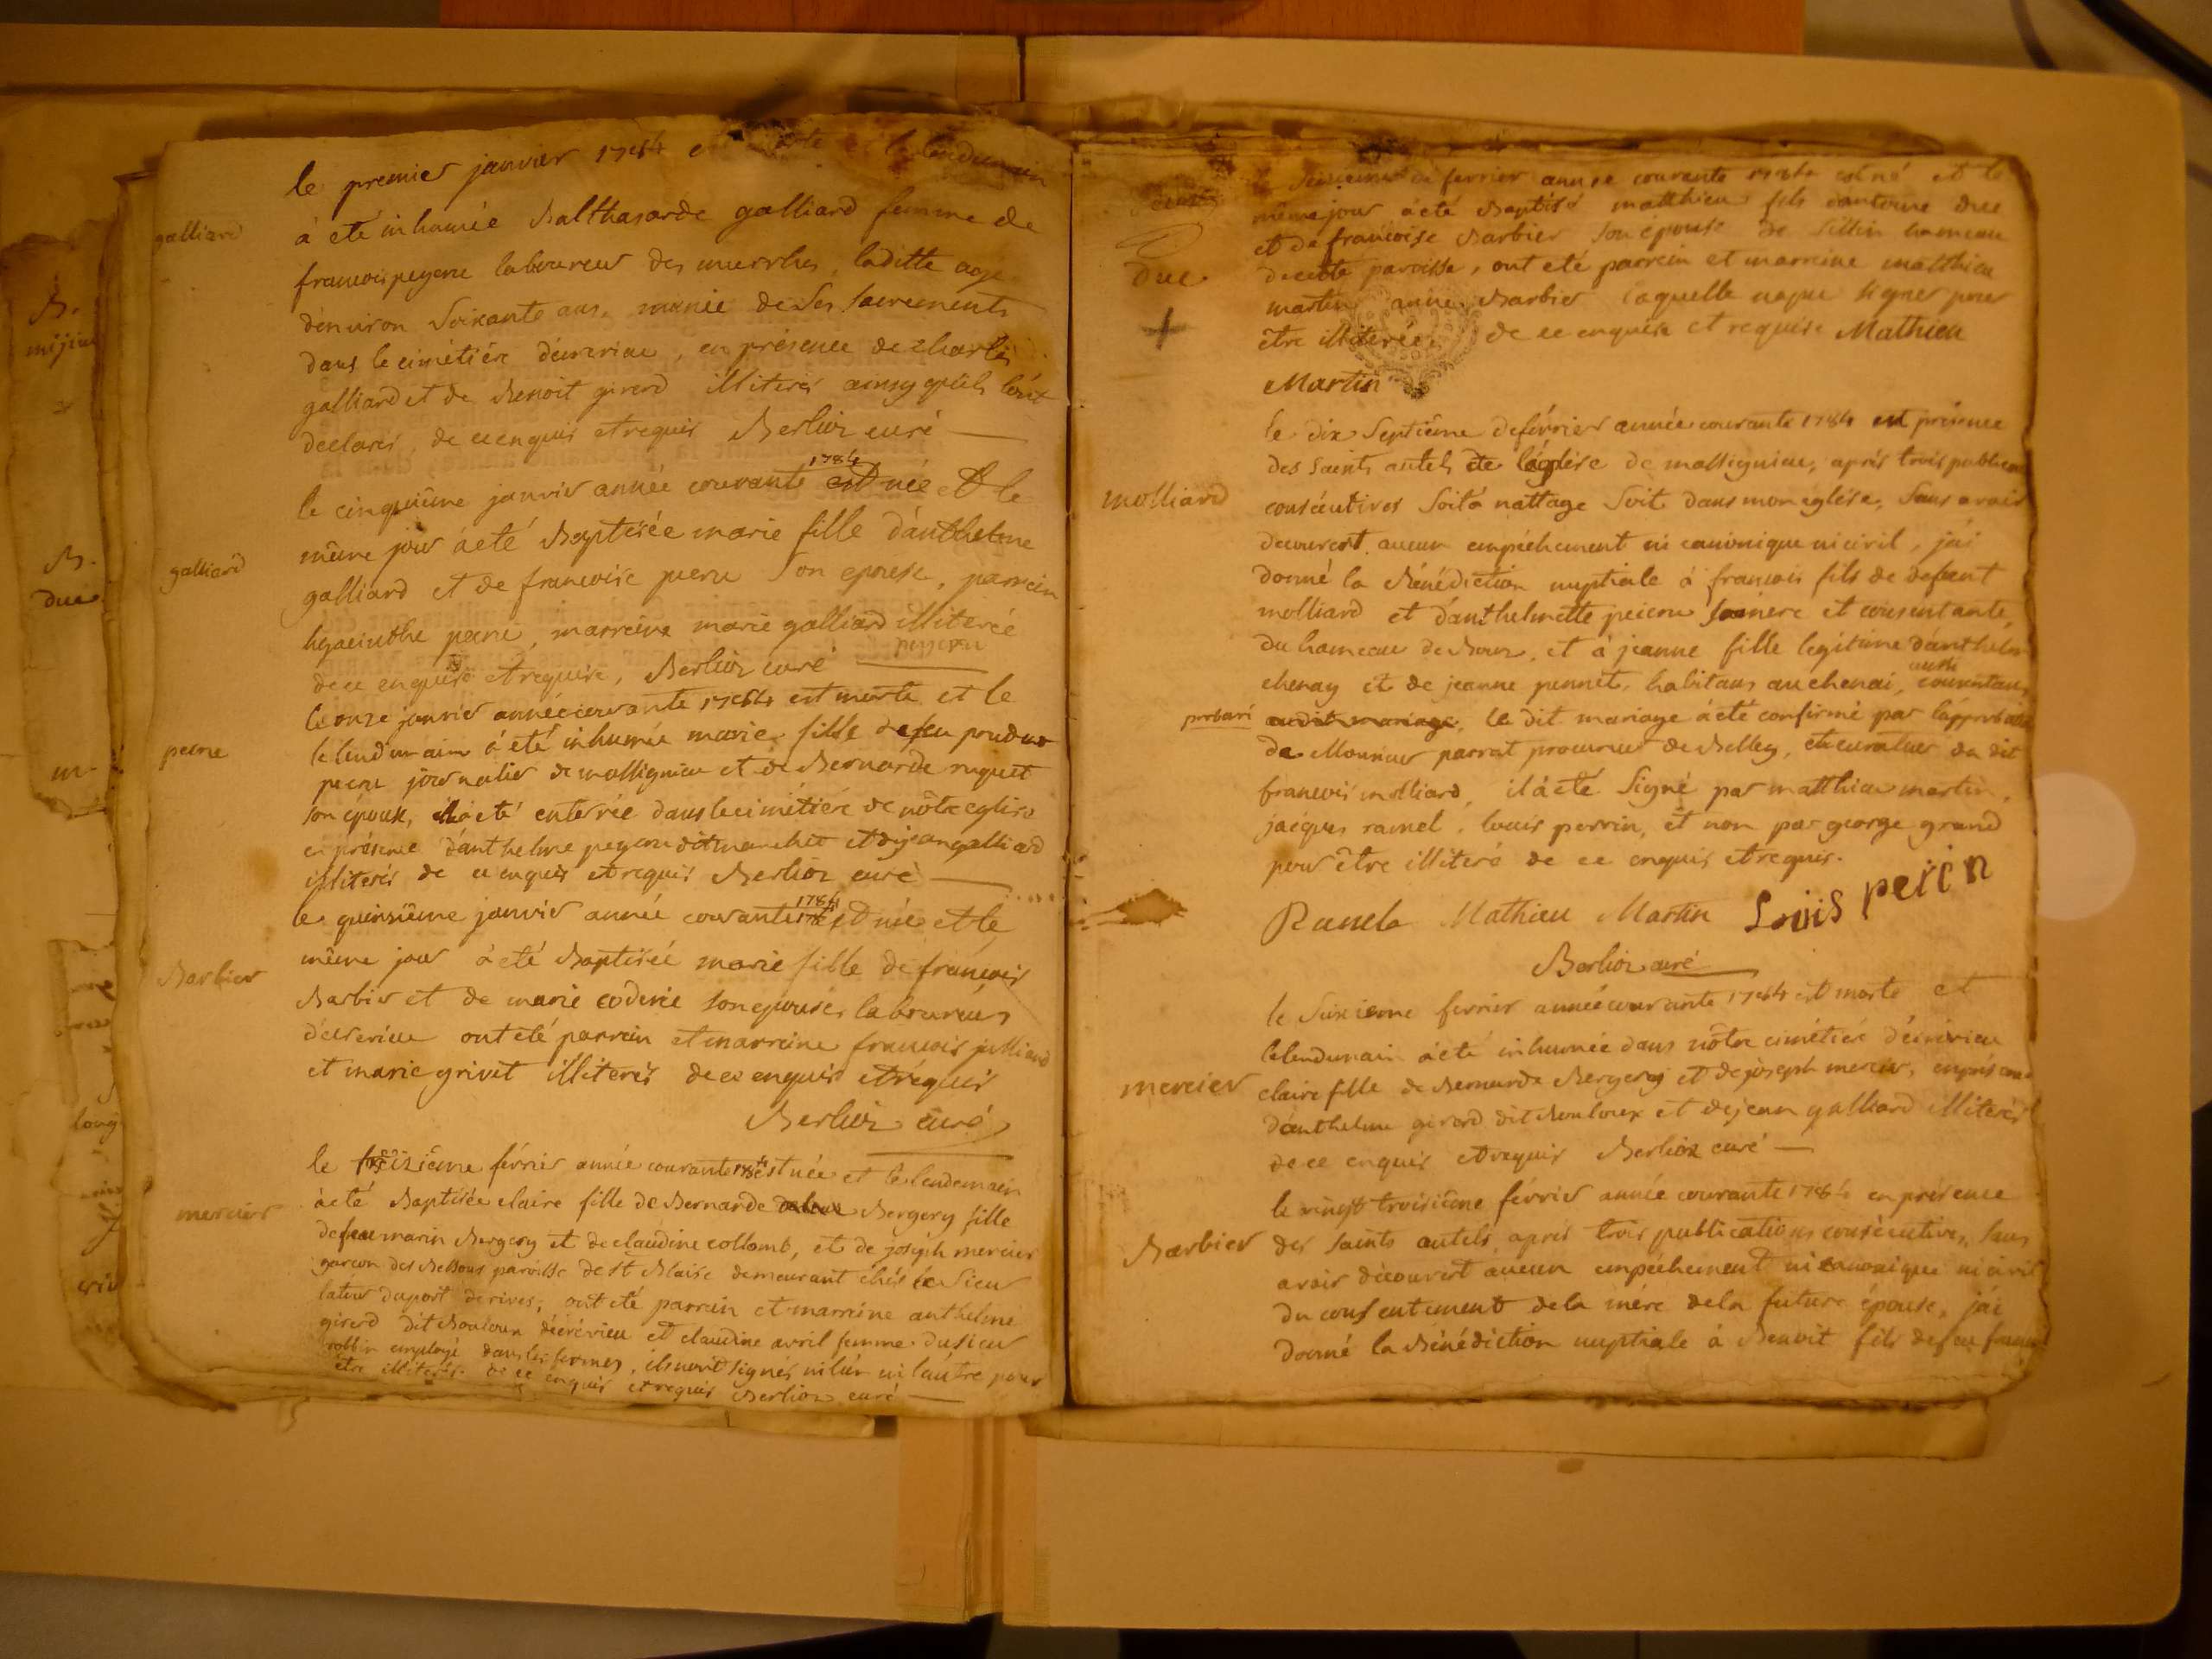 le premier janvier 1784 et le lendemain
galliard
à eté inhumée Balthasarde galliard femme de
francois peyene laboureur des murrhes, laditte agé
d'environ Soixante ans, munie de Ses Sacrements
dans le cimétiére d'écrevieu, en présence de charles
galliard et de Benoit girerd illiterés ainsy qu'ils l'ont
declarés, de ce enquis et requis Berlioz curé
le cinquiême janvier année courante 1784 est née et le
même jour à eté Baptisée marie fille d'anthelme
galliard
galliard et de francoise peene Son epouse, parrein
hyacinthe peene, marreine marie galliard illiterée
de ce enquise et requise, Berlioz curé
le onze janvier année courante 1784 est morte et le
lelendemain à été inhumée marie fille de feu
peene
peene journalier de massignieu et de Bernarde ruguet
son épouse, à eté enterrée dans le cimétiére de nôtre eglise
en présence d'anthelme peyene dit et de jean galliard
illiterés de ce enquis et requis Berlioz curé
le quinsiême janvier année courante 1784 est née et le
même jour à eté Baptisée marie fille de françois
Barbier
Barbier et de marie coderie son epouse, laboureurs
d'écrevieu ont eté parrein et marreine francois julliard
et marie grivet illiterés de ce enquis et requis
Berlioz curé
le treiziême février année courante est née et le lendemain
à eté Baptisée claire fille de Bernarde Bergery fille
mercier
de feu marin Bergery et de claudine collomb, et de joseph mercier
garcon des Bessons paroisse de st Blaise demeurant chés le Sieur
duport de rives, ont eté parrein et marreine anthelme
girerd dit Bouloux d'écrévieu et claudine avril femme du sieur
robbin employé dans les fermes, ils n'ont signés ni l'un ni l'autre pour
être illiterés. de ce enquis et requis Berlioz curé
de fevrier année courante 1784 est né et le
même jour à eté Baptisé matthieu fils d'antoine duc
et de francoise Barbier Son épouse de Sillin hameau
duc
de cette paroisse, ont eté parrein et marreine matthieu
martin anne Barbier laquelle n'a pu signer pour
être illiterée, de ce enquise et requise Mathieu
Martin
le dix Septiême de février année courante 1784 en présence
des Saints autels de l'église de massignieu, aprés trois publica
molliard
consécutives Soit à nattage Soit dans mon eglise, Sans avoir
decouvert aucun empéchement ni canonique ni civil, j'ai
donné la Bénédiction nuptiale à francois fils de defunt
molliard et d'anthelmette peicene Sa mere et consentante,
du hameau de Bour, et à jeanne fille legitime d'anthelm
chenay et de jeanne pennet, habitans au chenai, aussi consentans
audit mariage, le dit mariage à eté confirmé par l'approbation
de Monsieur parrat procureur de Belley, et curateur du dit
francois molliard, il à eté Signé par matthieu martin,
jacques ramel, louis perrin, et non par george grand
pour être illiteré de ce enquis et requis.
Ramel Mathieu Martin Louis perin
Berlioz curé
le Sixieme fevrier année courante 1784 est morte et
lelendemain à eté inhumée dans nôtre cimétiére d'écrévieu
mercier
claire fille de Bernarde Bergery et de joseph mercier, en présence
d'anthelme girerd dit Bouloux et de jean galliard illiterés
de ce enquis et requis Berlioz curé
le vingt troisiême février année courante 1784 en présence
Barbier
des Saints autels, aprés trois publications consécutives, Sans
avoir découvert aucun empéchement ni canonique ni civil
du consentement de la mére de la future épouse, j'ai
donné la Bénédiction nuptiale à Benoit fils de feu